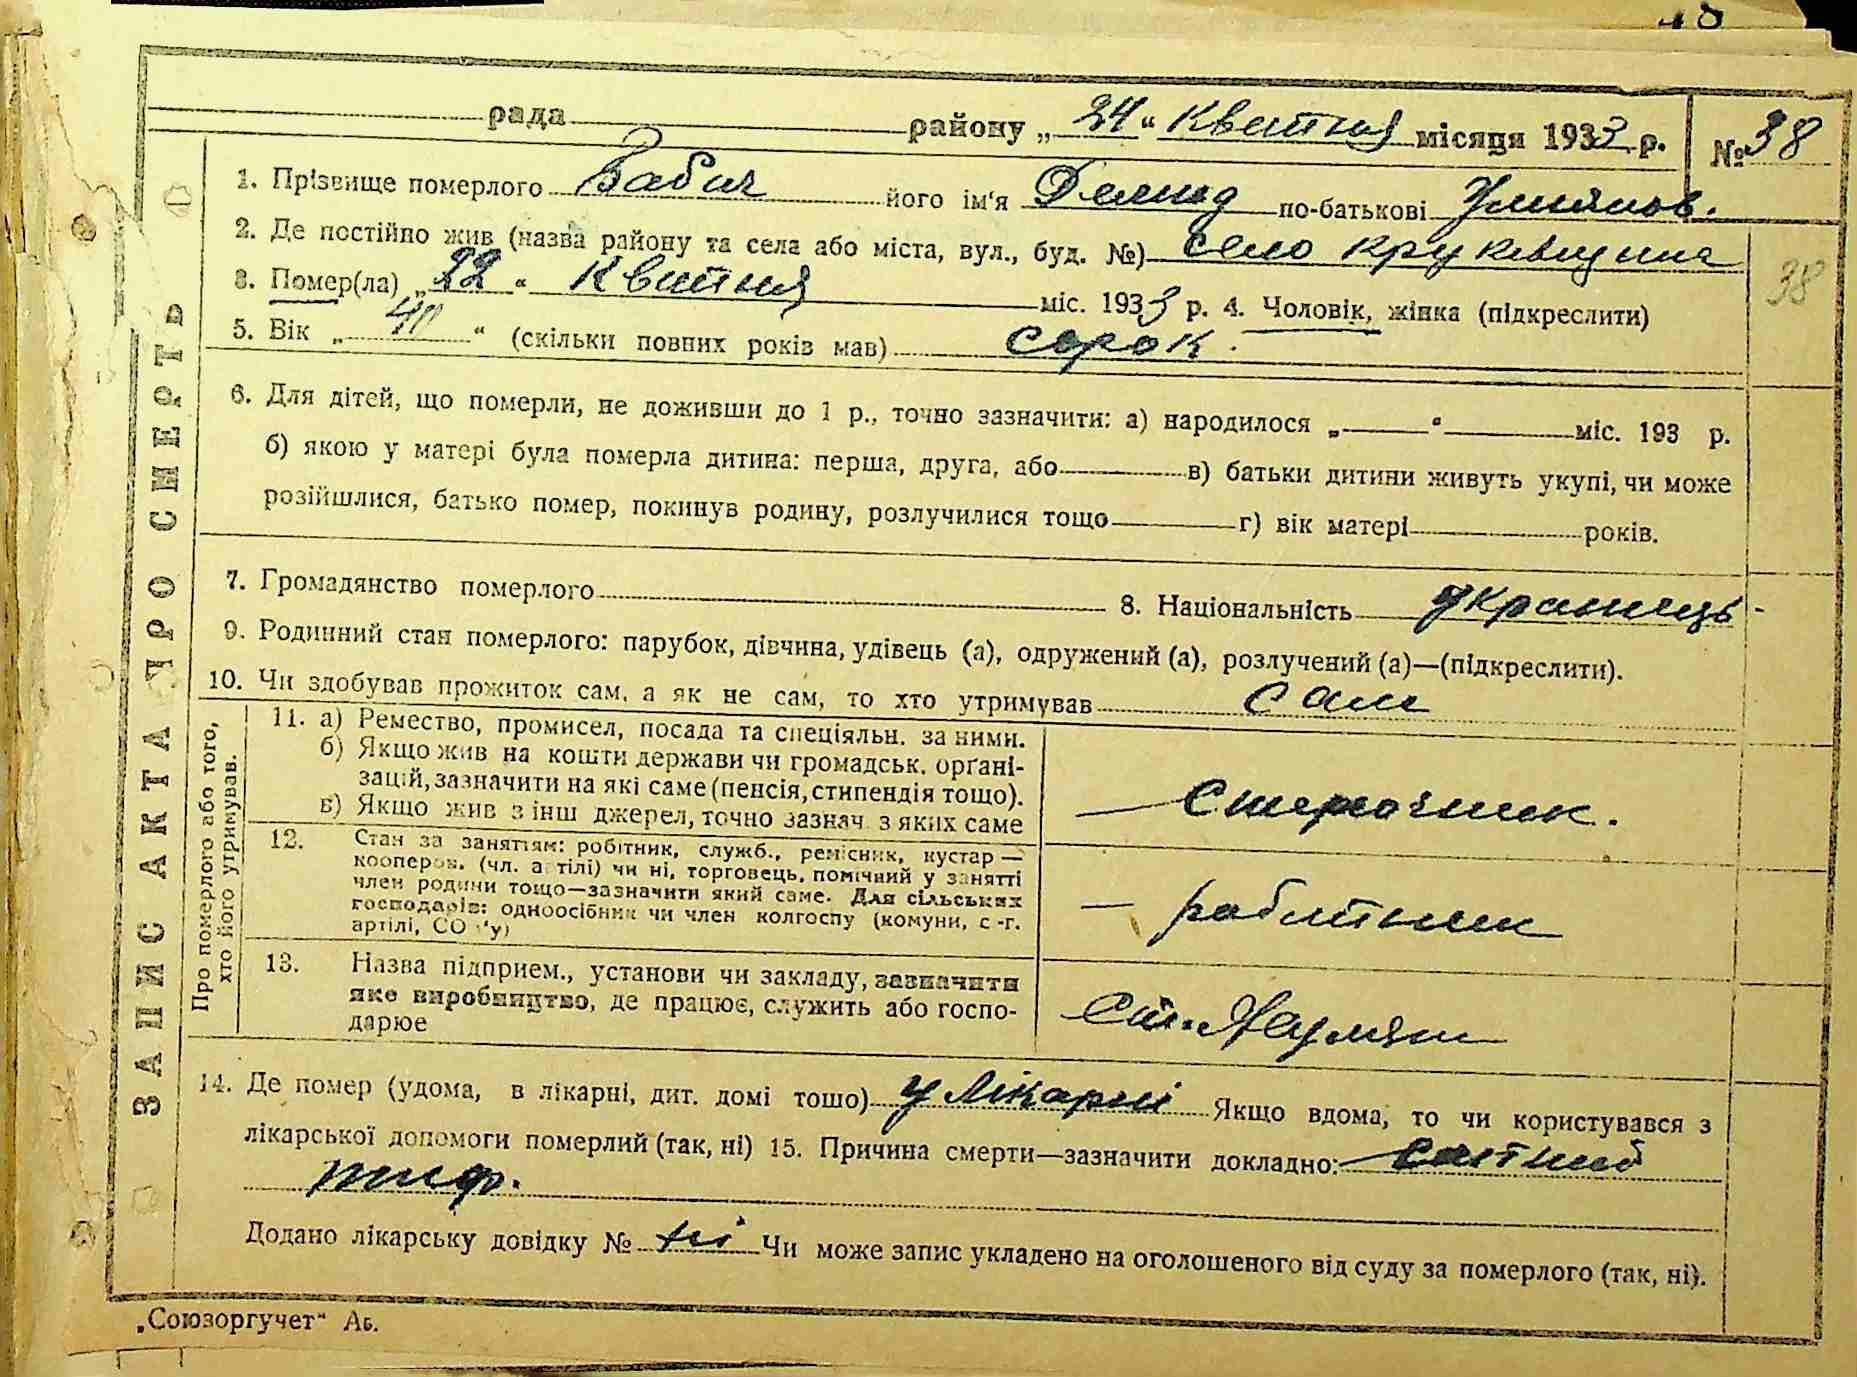 рада района „24“ Квитня місяця 1933 р. № 38
1. Прізвище померлого Бабич його ім‘я Демид по-батькові
2. Де постійно жив (назва району та села або міста, вул., буд. №) село Круківщина
38
3. Помер(ла) „22“ Квитня міс. 1933 р. 4. Чоловік, жінка (підкреслити)
5. Вік „40“ (скільки повних років мав) сорок.
6. Для дітей, що померли, не доживши до 1 р., точно зазначити: а) народилося „ “ міс. 193 р.
б) якою у матері була померла дитина: перша, друга, або в) батьки дитини живуть укупі, чи може
розійшлися, батько помер, покинув родину, розлучилися тощо г) вік матері років.
7. Громадянство померлого 8. Національність украинець
9. Родинний стан померлого: парубок, дівчина, удівець (а), одружений (а), розлучений (а)—(підкреслити).
10. Чи здобував прожиток сам, а як не сам, то хто утримував сам
11. а) Ремество, промисел, посада та спеціяльн. за ними.
б) Якщо жив на кошти держави чи громадськ. орґані-
зацій, зазначити на які саме (пенсія, стипендія тощо).
в) Якщо жив з інш джерел, точно зазнач. з яких саме
12. Стан за заняттям: робітник, служб., ремісник, кустар —
кооперов. (чл. артілі) чи ні, торговець, помічний у занятті
член родини тощо—зазначити який саме. Для сільських
господарів: одноосібник чи член колгоспу (комуни, с.-г.
артілі, СОЗ‘у)
— работник
13. Назва підприєм., установи чи закладу, зазначити
яке виробництво, де працює, служить або госпо-
дарює
Про померлого або того,
хто його утримував.
14. Де помер (удома, в лікарні, дит. домі тощо) у лікарні Якщо вдома, то чи користувався з
лікарської допомоги померлий (так, ні) 15. Причина смерти—зазначити докладно:
тиф.
Додано лікарську довідку № ні Чи може запис укладено на оголошеного від суду за померлого (так, ні).
ЗАПИС АКТА ПРО СМЕРТЬ
„Союзоргучет“ Аб.